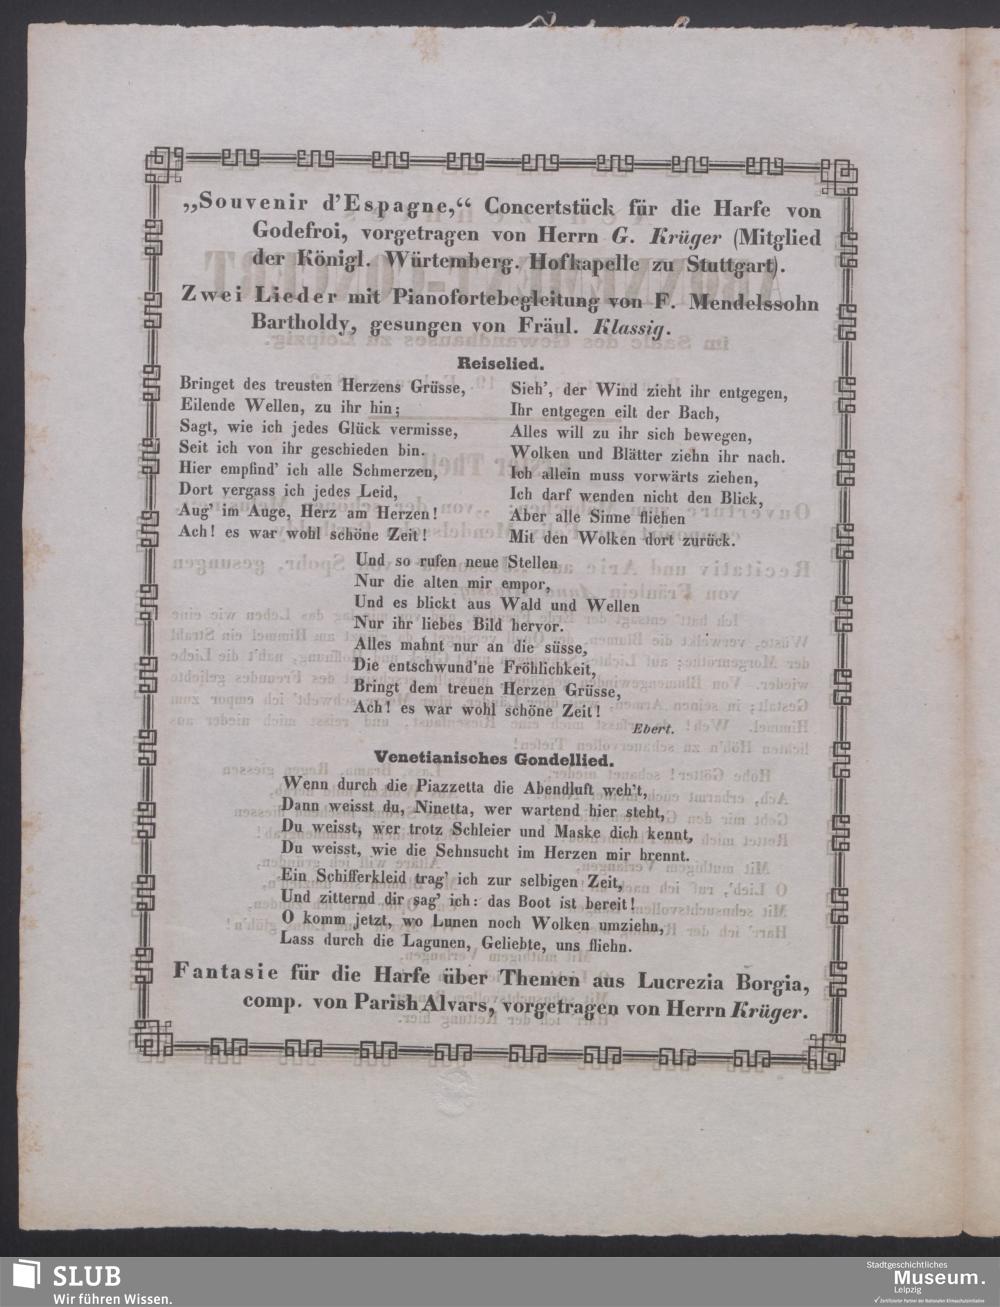 „Souvenir d'Espagne,“ Concertstück für die Harfe von
Godefroi, vorgetragen von Herrn G. Krüger (Mitglied
der Königl. Würtemberg. Hofkapelle zu Stuttgart).
Zwei Lieder mit Pianofortebegleitung von F. Mendelssohn
Bartholdy, gesungen von Fräul. Klassig.
Reiselied.
Bringet des treusten Herzens Grüsse,
Eilende Wellen, zu ihr hin;
Sagt, wie ich jedes Glück vermisse,
Seit ich von ihr geschieden bin.
Hier empfind' ich alle Schmerzen,
Dort vergass ich jedes Leid,
Aug' im Auge, Herz am Herzen!
Ach! es war wohl schöne Zeit!
Sieh', der Wind zieht ihr entgegen,
Ihr entgegen eilt der Bach,
Alles will zu ihr sich bewegen,
Wolken und Blätter ziehn ihr nach.
Ich allein muss vorwärts ziehen,
Ich darf wenden nicht den Blick,
Aber alle Sinne fliehen
Mit den Wolken dort zurück.
Und so rufen neue Stellen
Nur die alten mir empor,
Und es blickt aus Wald und Wellen
Nur ihr liebes Bild hervor.
Alles mahnt nur an die süsse,
Die entschwund'ne Fröhlichkeit,
Bringt dem treuen Herzen Grüsse,
Ach! es war wohl schöne Zeit!
Ebert.
Venetianisches Gondellied.
Wenn durch die Piazzetta die Abendluft weh't,
Dann weisst du, Ninetta, wer wartend hier steht,
Du weisst, wer trotz Schleier und Maske dich kennt,
Du weisst, wie die Sehnsucht im Herzen mir brennt.
Ein Schifferkleid trag' ich zur selbigen Zeit,
Und zitternd dir sag' ich: das Boot ist bereit!
O komm jetzt, wo Lunen noch Wolken umziehn,
Lass durch die Lagunen, Geliebte, uns fliehn.
Fantasie für die Harfe über Themen aus Lucrezia Borgia,
comp. von Parish Alvars, vorgetragen von Herrn Krüger.
SLUB
Wir führen Wissen.
Stadtgeschichtliches
Museum.
Leipzig
Zertifizierter Partner der Nationalen Klimaschutzinitiative